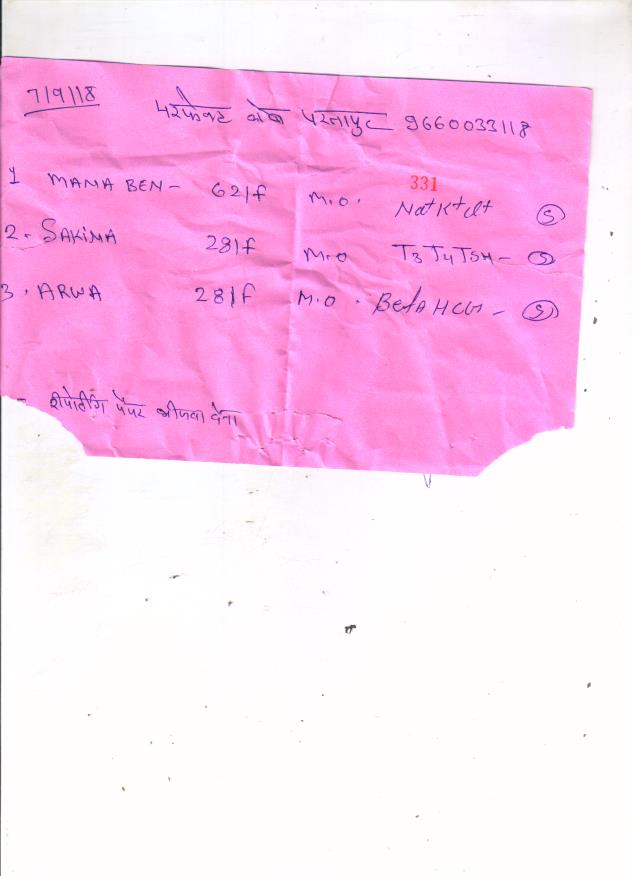 7/9/18
परफेक्ट लैब परतापुर 9660033118
331
1 MAMA BEN - 62/f M.O. Na+ K+ cl+ (S)
2. SAKINA 28/f M.O T3 T4 TSH - (S)
3. ARWA 28/f M.O. Beta HCG - (S)
- रिपोर्टिंग पेपर भीजवा देना